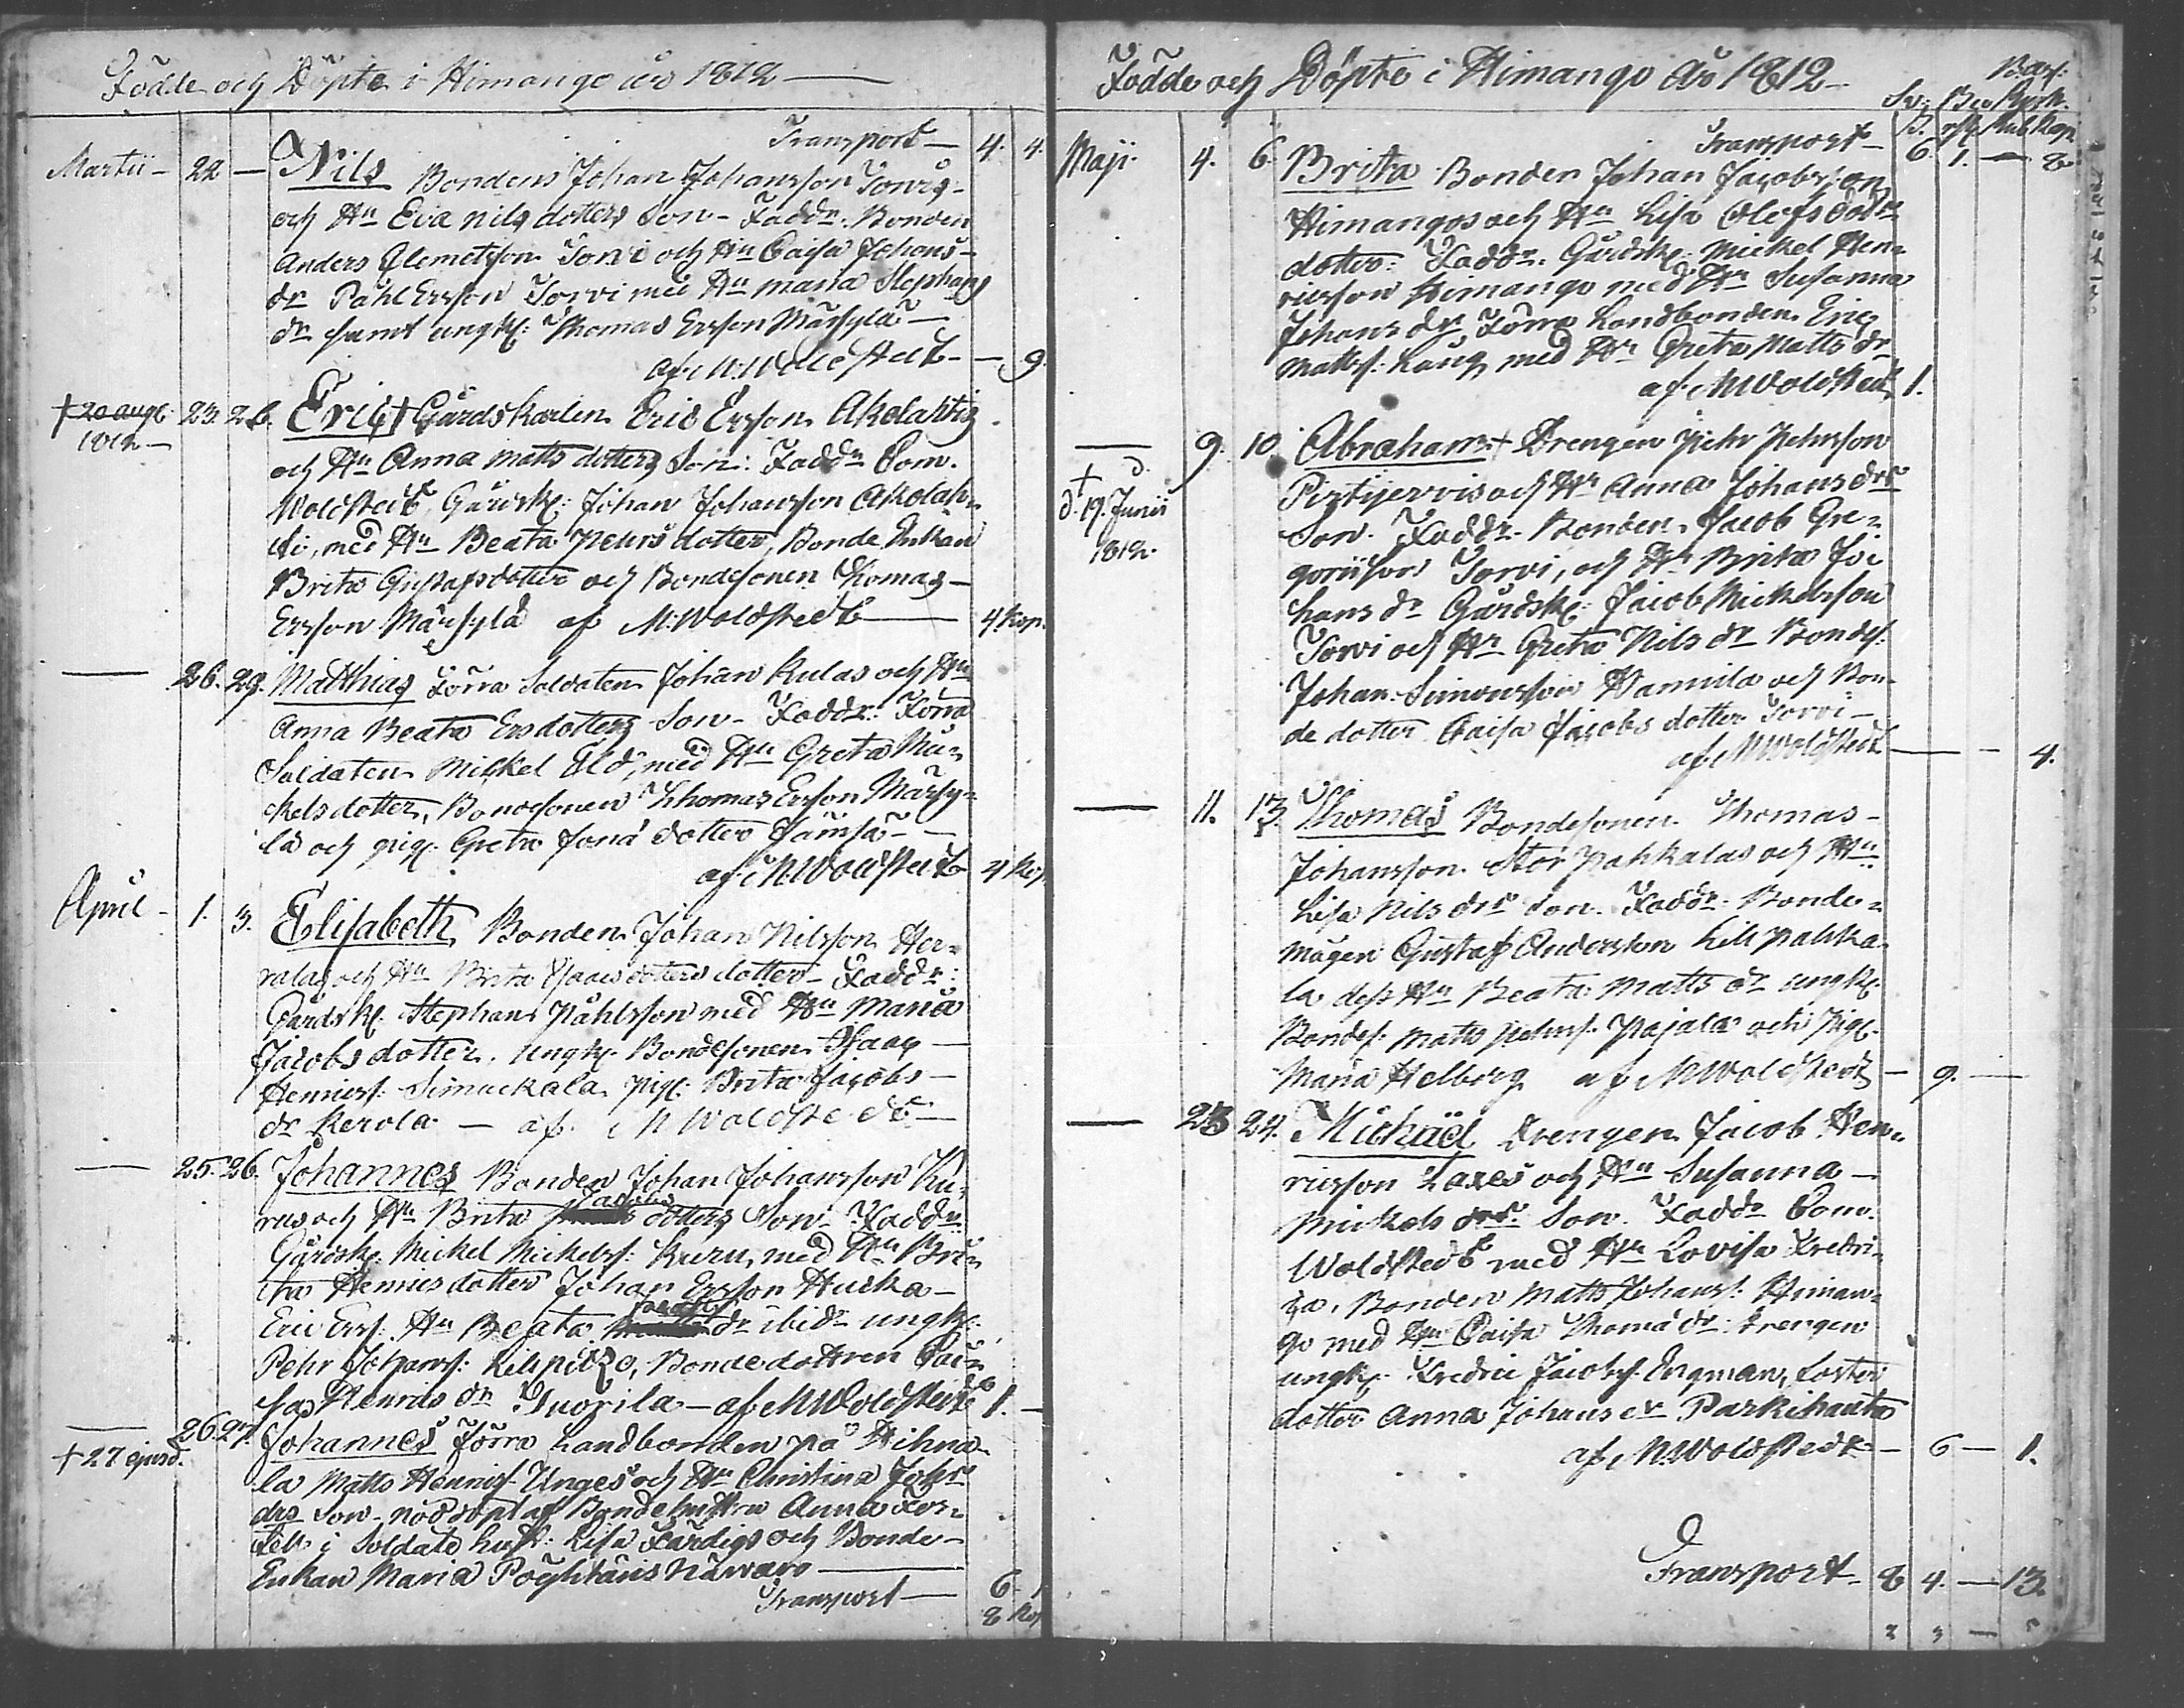 Födde och Döpte i Himango år 1812
Transport 4. 4.
Martii 22 Nils Bondens Johan Johansson Torvis
och Hu Eva Nils dotters Son. Faddr: Bonden
Anders Clemetsson Torvi och Hu Caisa Johans
dr Påhl Ersson Torvi med Hu Maria Stephans
dr samt ungk: Thomas Ersson Märsylä
af M. Woldstedt 9.
† 20 aug. 1812 23. 26. Eric † Gårdskarlen Eric Ersson Akolahtis
och Hu Anna Matts dotters Son: Faddr Com.
Woldstedt, Gårdsk: Johan Johansson Akolah
ti, med Hu Beata Pehrs dotter, Bonde Enkan
Brita Gustafsdotter och Bondesonen Thomas
Ersson Märsylä af M: Woldstedt 4. Kop.
26. 29. Matthias Förra Soldaten Johan Kulas och Hu
Anna Beata Ersdotters Son. Faddr: Förra
Soldaten Mickel Eld, med Hu Greta Mic
kelsdotter, Bondesonen Thomas Ersson Märsy
lä och pig. Greta Jona dotter Jämsä
af M. Woldstedt 4 Kop
April 1. 3. Elisabeth Bonden Johan Nilsson Her
ralas och Hu Brita Isaacs dotters dotter. Faddr:
Gårdsk. Stephan Påhlsson med Hu Maria
Jacobs dotter. Ungk. Bondesonen Isaac
Henricss. Simuckala pig. Brita Jacobs
dr Kerola. af M Woldstedt
25. 26. Johannes Bonden Johan Johansson Ku
rus och Hu Brita Jacobs dotters Son. Faddr
Gårdsk. Mickel Mickelss: Kuru, med Hu Bri
tha Henrics dotter Johan Ersson Hucka
Eric Erss. Hu Beata dr ibidr ungk.
Pehr Johanss: Lillpitzo, Bonde dottren Cai
sa Henrics dr Tuorila af M Woldstedt 1.
† 27 ejusd. 26 27. Johannes Förra Landbonden på Hihna
la Matts Henrics. Unges och Hu Christina Johs
drs Son. nöddöpt af Bondehustru Anna
i Soldate hust. Lisa Färdigs och Bonde
Enkan Maria närvaro
Transport 6. 1
8 Kop
Födde och Döpte i Himango År 1812
Transport 6. 1. 8
Maji. 4. 6. Brita Bonden Johan Jacobsson
Himangos och Hu Lisa Olofs dotrs
dotter: Faddr. Gårdsk. Mickel Hen
ricsson Himango med Hu Susanna
Johans dr Förra Landbonden Eric
Mattss: Laug med Hu Greta Matts dr
af M Woldstedt 1.
† d. 19. Junii 1812. 9. 10. Abraham † Drengen Pehr Pehrsson
Pirtijervis och Hu Anna Johans drs
Son. Faddr. Bonden Jacob Gre
goriison Torvi, och Hu Brita Jo
hans dr Gårdsk: Jacob Mickelsson
Torvi och Hu Greta Nils dr Bondes.
Johan Simonsson Hannila och Bon
de dotter Caisa Jacobs dotter Torvi
af M Woldstedt 4.
11. 13. Thomas Bondesonen Thomas
Johansson Stor Pahkalas och Hu
Lisa Nils drs Son. Faddr. Bonde
mågen Gustaf Andersson Lill pahka
la dess Hu Beata Matts dr ungk.
Bondes. Matts Pehrss. Pajala och Pig.
Maria Helberg af M Woldstedt 9.
23 24. Michaël Drengen Jacob Hen
ricsson Laxes och Hu Susanna
Mickels drs. Son. Faddr Com.
Woldstedt med Hu Lovisa Fredri
ca, Bonden Matts Johanss. Himan
go med Hu Caisa Thoma dr. Drengen
ungk. Fredric Jacobss. Engman, Foster
dotter Anna Johans dr Parkihauta
af M. Woldstedt 6 1.
Transport 8 4. 13.